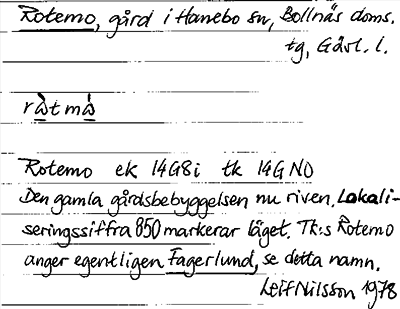 Rotemo, gård i Hanebo sn, Bollnäs doms.
tg, Gävl. l.
ek 14G8i tk 14G NO
Rotemo ek 14G8i tk 14G NO
Den gamla gårdsbebyggelsen nu riven. Lokali-
seringssiffra 850 markerar läget. Tk:s Rotemo
anger egentligen Fagerlund, se detta namn.
Leif Nilsson 1978